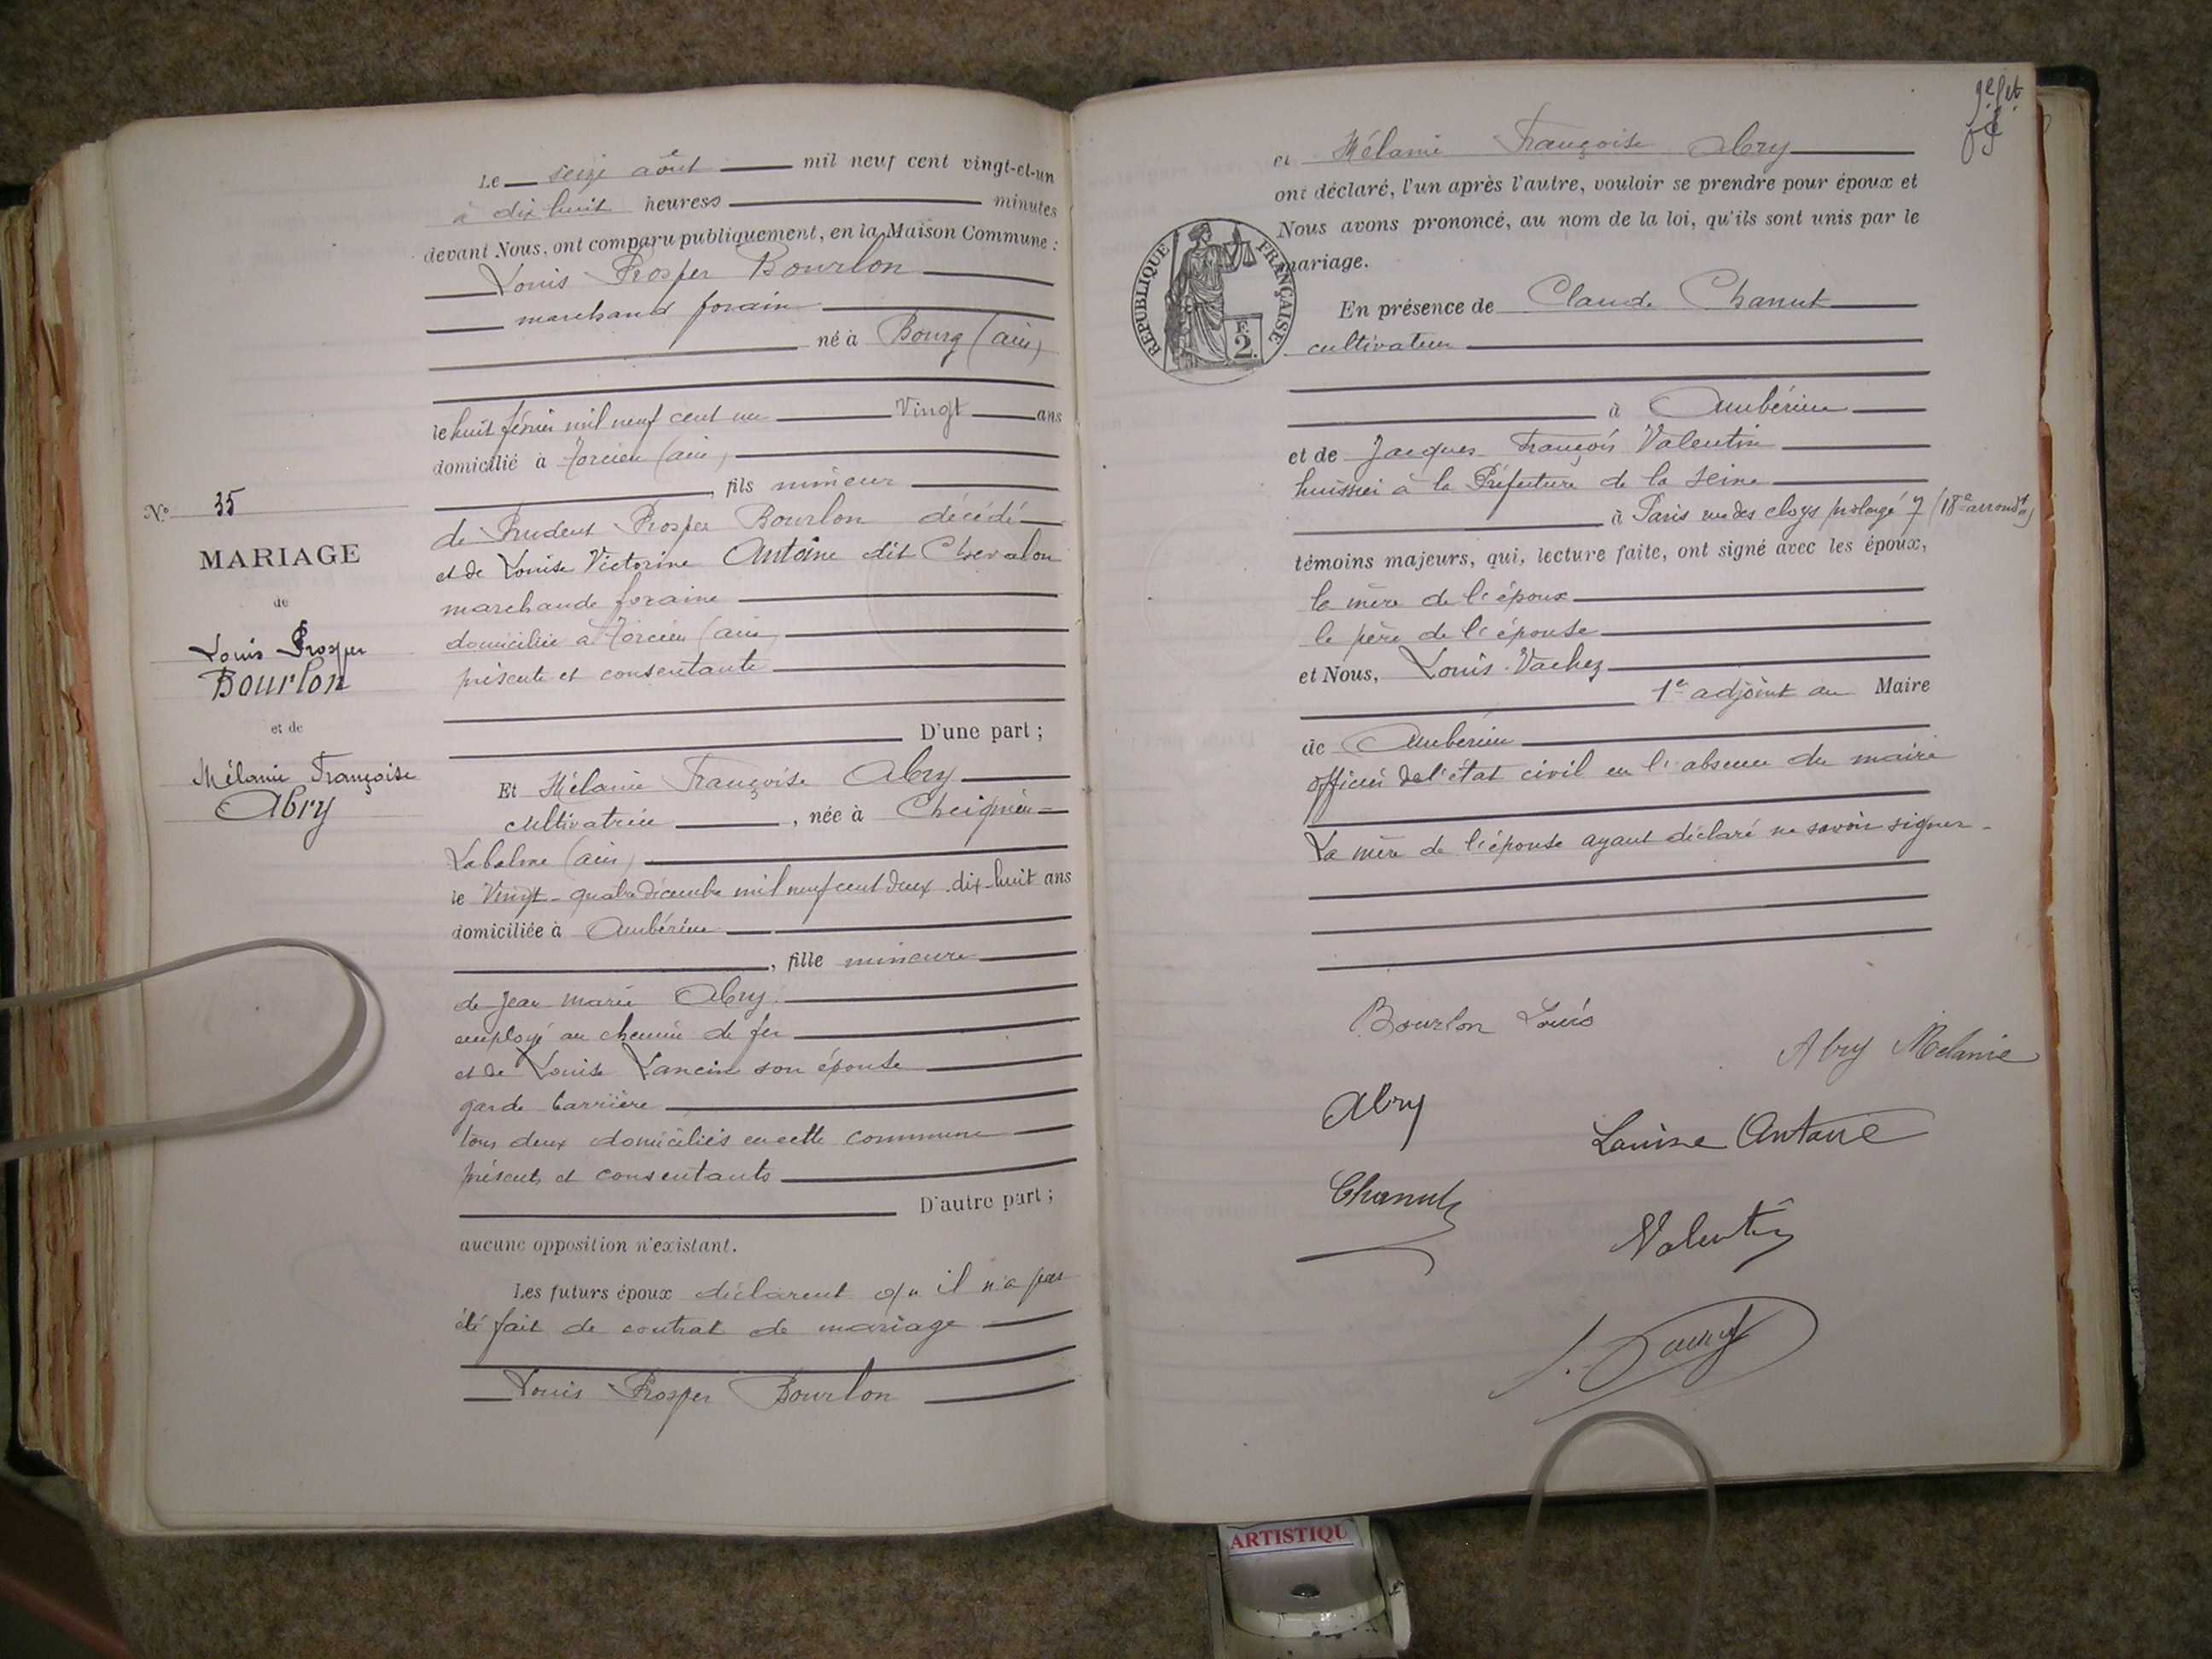 Le seize août mil neuf cent vingt-et-un
à dix huit heuress minutes
devant Nous, ont comparu publiquement, en la Maison Commune :
Louis Prosper Bourlon
marchand forain
né à Bourg (ain)
le huit février mil neuf cent un Vingt ans
domicilié à Torcieu (ain)
, fils mineur
de Prudent Prosper Bourlon décédé
et de Louise Victorine Antoine dit Chevalon
marchande foraine
domiciliée à Torcieu (ain)
présente et consentante
D'une part ;
Et Mélanie Françoise Abry
cultivatrice , née à Cheignieu-
Labalme (ain)
le Vingt-quatre décembre mil neuf cent deux dix-huit ans
domiciliée à Ambérieu
, fille mineure
de Jean Marie Abry
employé au chemin de fer
et de Louise Lancin son épouse
garde barrière
tous deux domiciliés en cette commune
présents et consentants
D'autre part ;
aucune opposition n'existant.
Les futurs époux déclarent qu'il n'a pas
été fait de contrat de mariage
Louis Prosper Bourlon
N° 35
MARIAGE
de
Louis Prosper
Bourlon
et de
Mélanie Françoise
Abry
et Mélanie Françoise Abry
ont déclaré, l'un après l'autre, vouloir se prendre pour époux et
Nous avons prononcé, au nom de la loi, qu'ils sont unis par le
mariage.
RÉPUBLIQUE FRANÇAISE
F.
2.
En présence de Claude Chanut
cultivateur
à Ambérieu
et de Jacques François Valentin
huissier à la Préfecture de la Seine
à Paris rue des cloys prolongé 7 (18e arrondt)
témoins majeurs, qui, lecture faite, ont signé avec les époux,
la mère de l'époux
le père de l'épouse
et Nous, Louis Vachez
1er adjoint au Maire
de Ambérieu
officier de l'état civil en l'absence du maire
La mère de l'épouse ayant déclaré ne savoir signer -
Bourlon Louis
Abry Melanie
Abry
Louise Antoine
Chanut
Valentin
ARTISTIQU